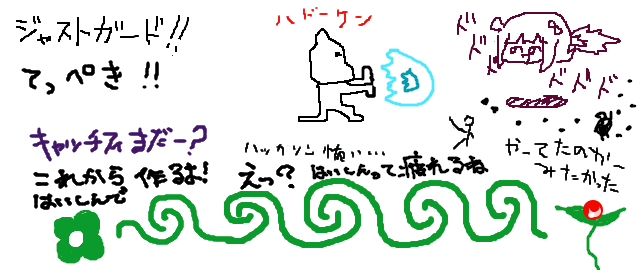 ジャストガード!!
てっぺき!!
ハドーケン
ドドド
ドドド
キャッチフィまだー?
これから作るよ!
はいしんで
ハッカソン怖い...
えっ? はいしんって疲れるね
やーてたのかー
みたかった